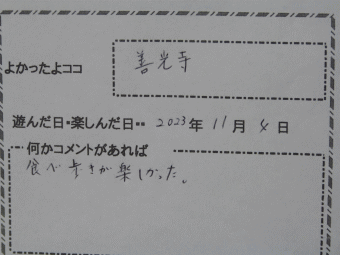 よかったよココ 善光寺
遊んだ日・楽しんだ日・・ 2023年 11月 4日
何かコメントがあれば
食べ歩きが楽しかった。